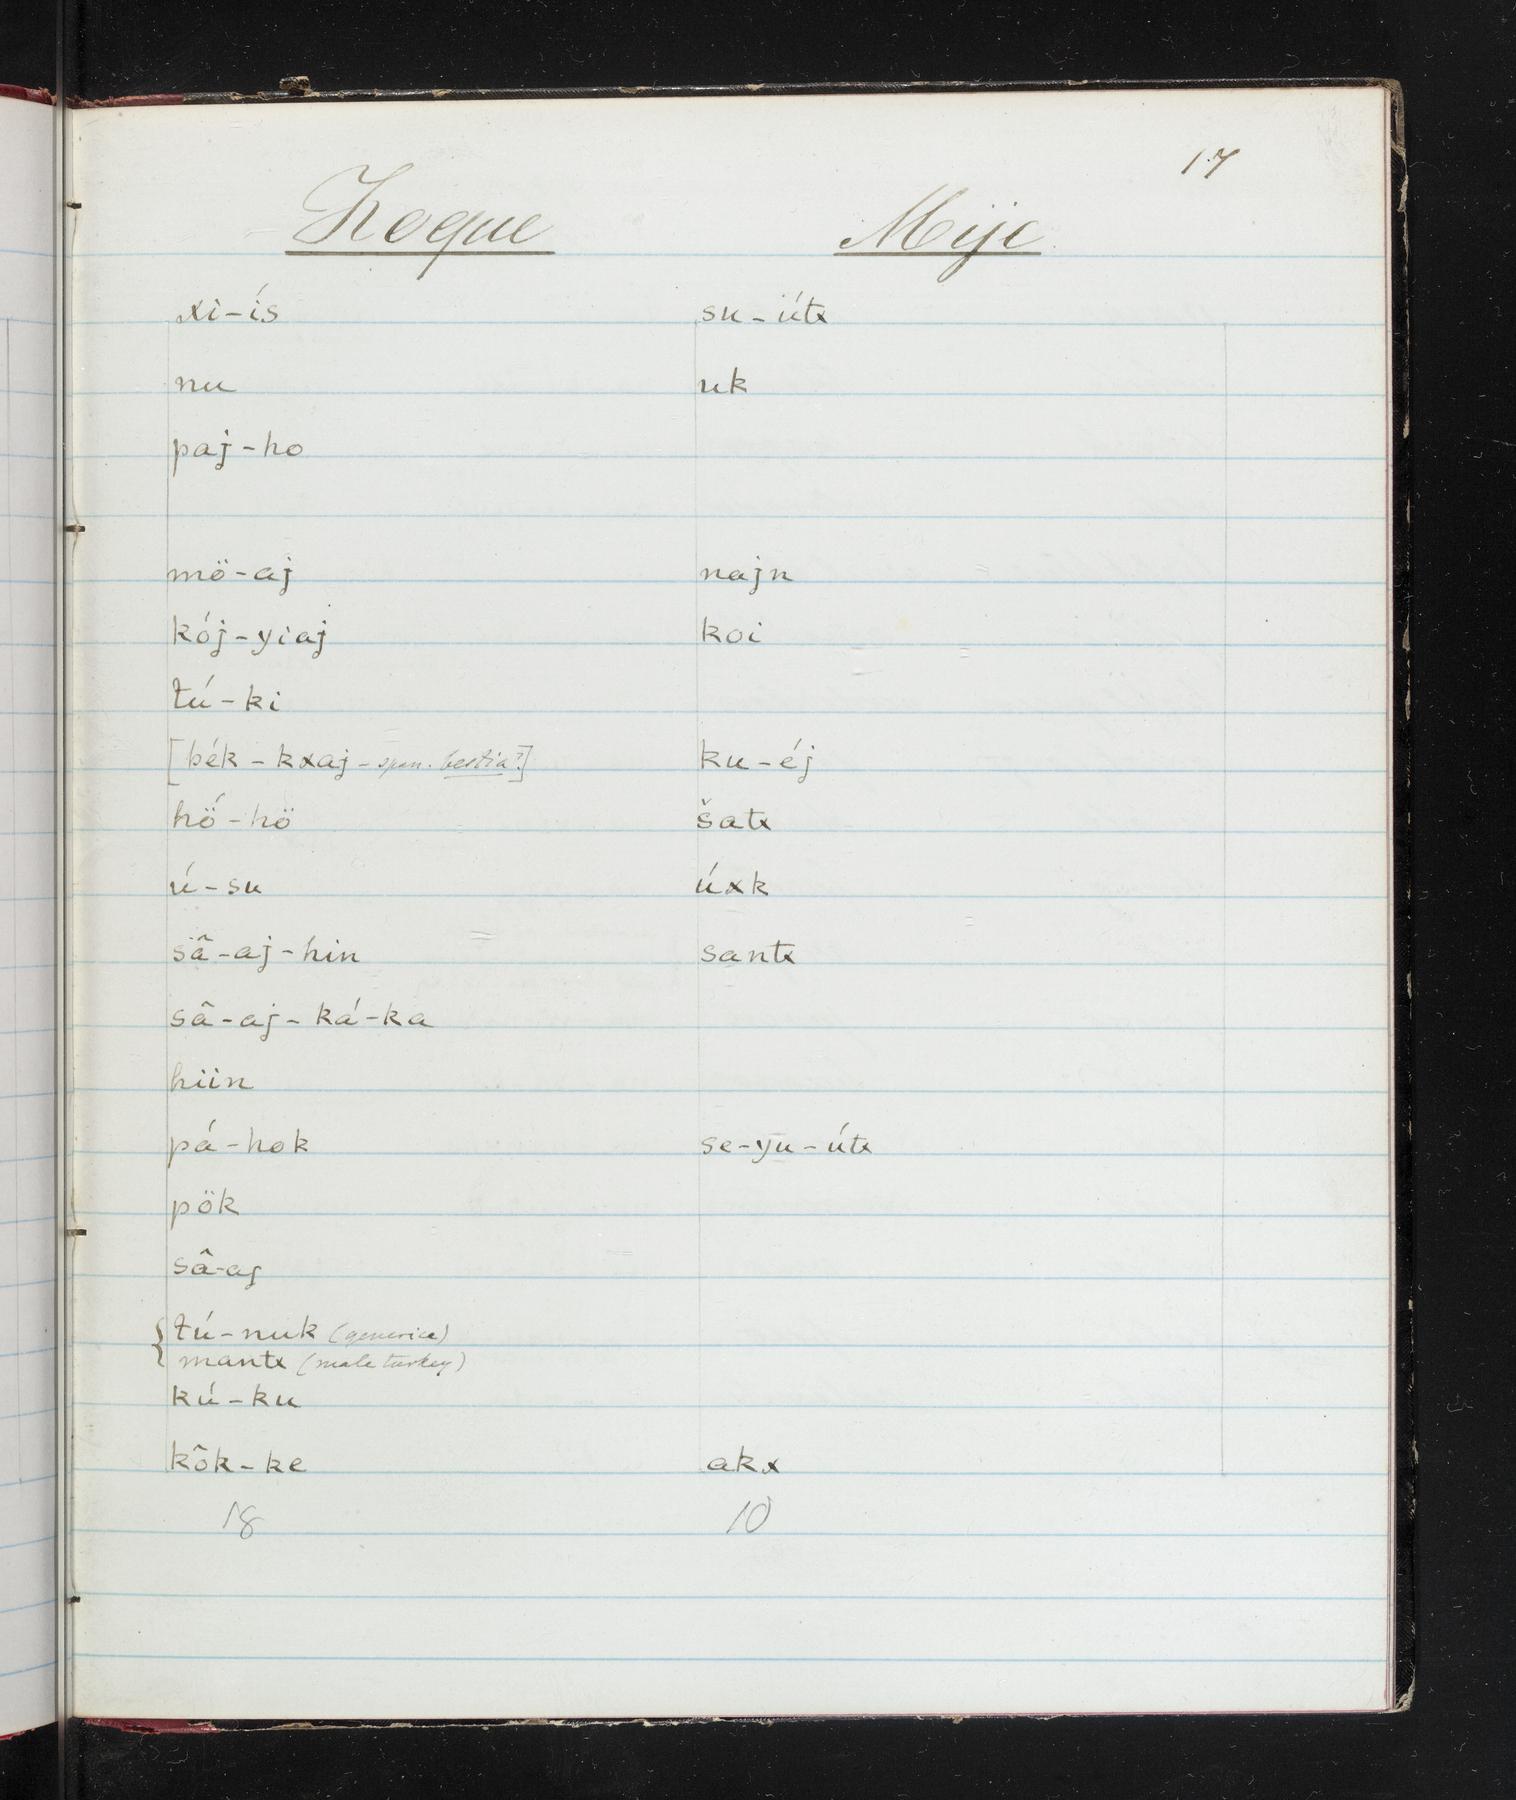 17
Zoque Mije
xi-ís su-útx
nu uk
paj-ho
mö-aj najn
kój-yiaj koi
tú-ki
[bék-kxaj - span. bestia?] ku-éj
hö́-hö šatx
ú-su úxk
sâ-aj-hin santx
sâ-aj-ká-ka
hiin
pá-hok se-yu-útx
pök
sâ-aj
{ tú-nuk (generice)
mantx (male turkey)
kú-ku
kôk-ke akx
18 10